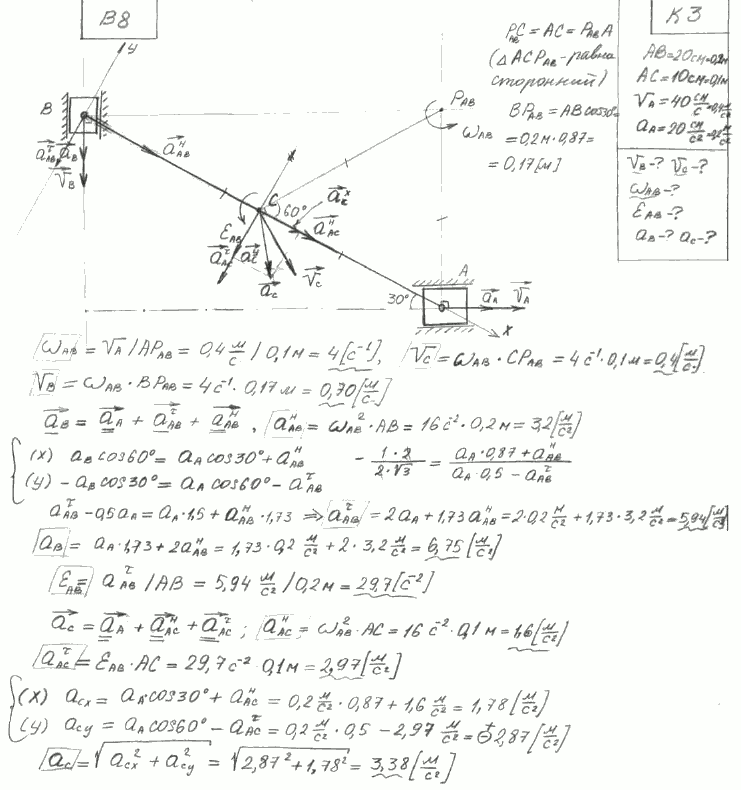 B8
К3
PC = AC = P_AB A
AB
(△ACP_AB - равно
сторонний)
BP_AB = AB cos30° =
= 0,2м · 0,87 =
= 0,17 [м]
AB = 20см = 0,2м
AC = 10см = 0,1м
V_A = 40 см/с = 0,4 м/с
a_A = 20 см/с² = 0,2 м/с²
V_B - ? V_C - ?
ω_AB - ?
ε_AB - ?
a_B - ? a_C - ?
y
B
P_AB
ω_AB
a^н_AB
a^τ_AB
a_B
V_B
C
60°
a^x_C
a^н_AC
ε_AB
a^τ_AC
a^y_C
a_C
V_C
A
30°
a_A
V_A
x
ω_AB = V_A / AP_AB = 0,4 м/с / 0,1м = 4 [с⁻¹], V_C = ω_AB · CP_AB = 4с⁻¹ · 0,1м = 0,4 [м/с]
V_B = ω_AB · BP_AB = 4с⁻¹ · 0,17м = 0,70 [м/с]
a_B = a_A + a^τ_AB + a^н_AB , a^н_AB = ω_AB² · AB = 16с⁻² · 0,2м = 3,2 [м/с²]
(x) a_B cos60° = a_A cos30° + a^н_AB - 1·2/2·√3 = a_A · 0,87 + a^н_AB / a_A · 0,5 - a^τ_AB
(y) - a_B cos30° = a_A cos60° - a^τ_AB
a^τ_AB - 0,5a_A = a_A · 1,5 + a^н_AB · 1,73 ⇒ a^τ_AB = 2a_A + 1,73a^н_AB = 2 · 0,2 м/с² + 1,73 · 3,2 м/с² = 5,94 [м/с²]
a_B = a_A · 1,73 + 2a^н_AB = 1,73 · 0,2 м/с² + 2 · 3,2 м/с² = 6,75 [м/с²]
ε_AB = a^τ_AB / AB = 5,94 м/с² / 0,2м = 29,7 [с⁻²]
a_C = a_A + a^н_AC + a^τ_AC ; a^н_AC = ω²_AB · AC = 16 с⁻² · 0,1м = 1,6 [м/с²]
a^τ_AC = ε_AB · AC = 29,7с⁻² · 0,1м = 2,97 [м/с²]
(x) a_Cx = a_A cos30° + a^н_AC = 0,2 м/с² · 0,87 + 1,6 м/с² = 1,78 [м/с²]
(y) a_Cy = a_A cos60° - a^τ_AC = 0,2 м/с² · 0,5 - 2,97 м/с² = 2,87 [м/с²]
a_C = √a_Cx² + a_Cy² = √2,87² + 1,78² = 3,38 [м/с²]